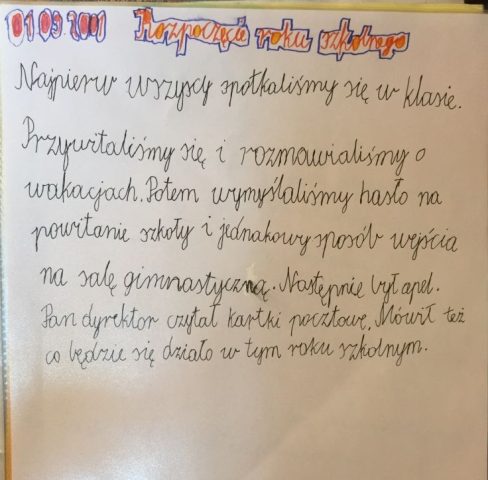 01 09 2001 Rozpoczęcie roku szkolnego
Najpierw wszyscy spotkaliśmy się w klasie.
Przywitaliśmy się i rozmawialiśmy o
wakacjach. Potem wymyślaliśmy hasło na
powitanie szkoły i jednakowy sposób wejścia
na salę gimnastyczną. Następnie był apel.
Pan dyrektor czytał kartki pocztowe. Mówił też
co będzie się działo w tym roku szkolnym.